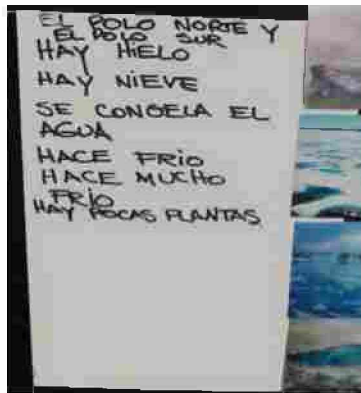 EL POLO NORTE Y
EL POLO SUR
HAY HIELO
HAY NIEVE
SE CONGELA EL
AGUA
HACE FRIO
HACE MUCHO
FRÍO
HAY POCAS PLANTAS